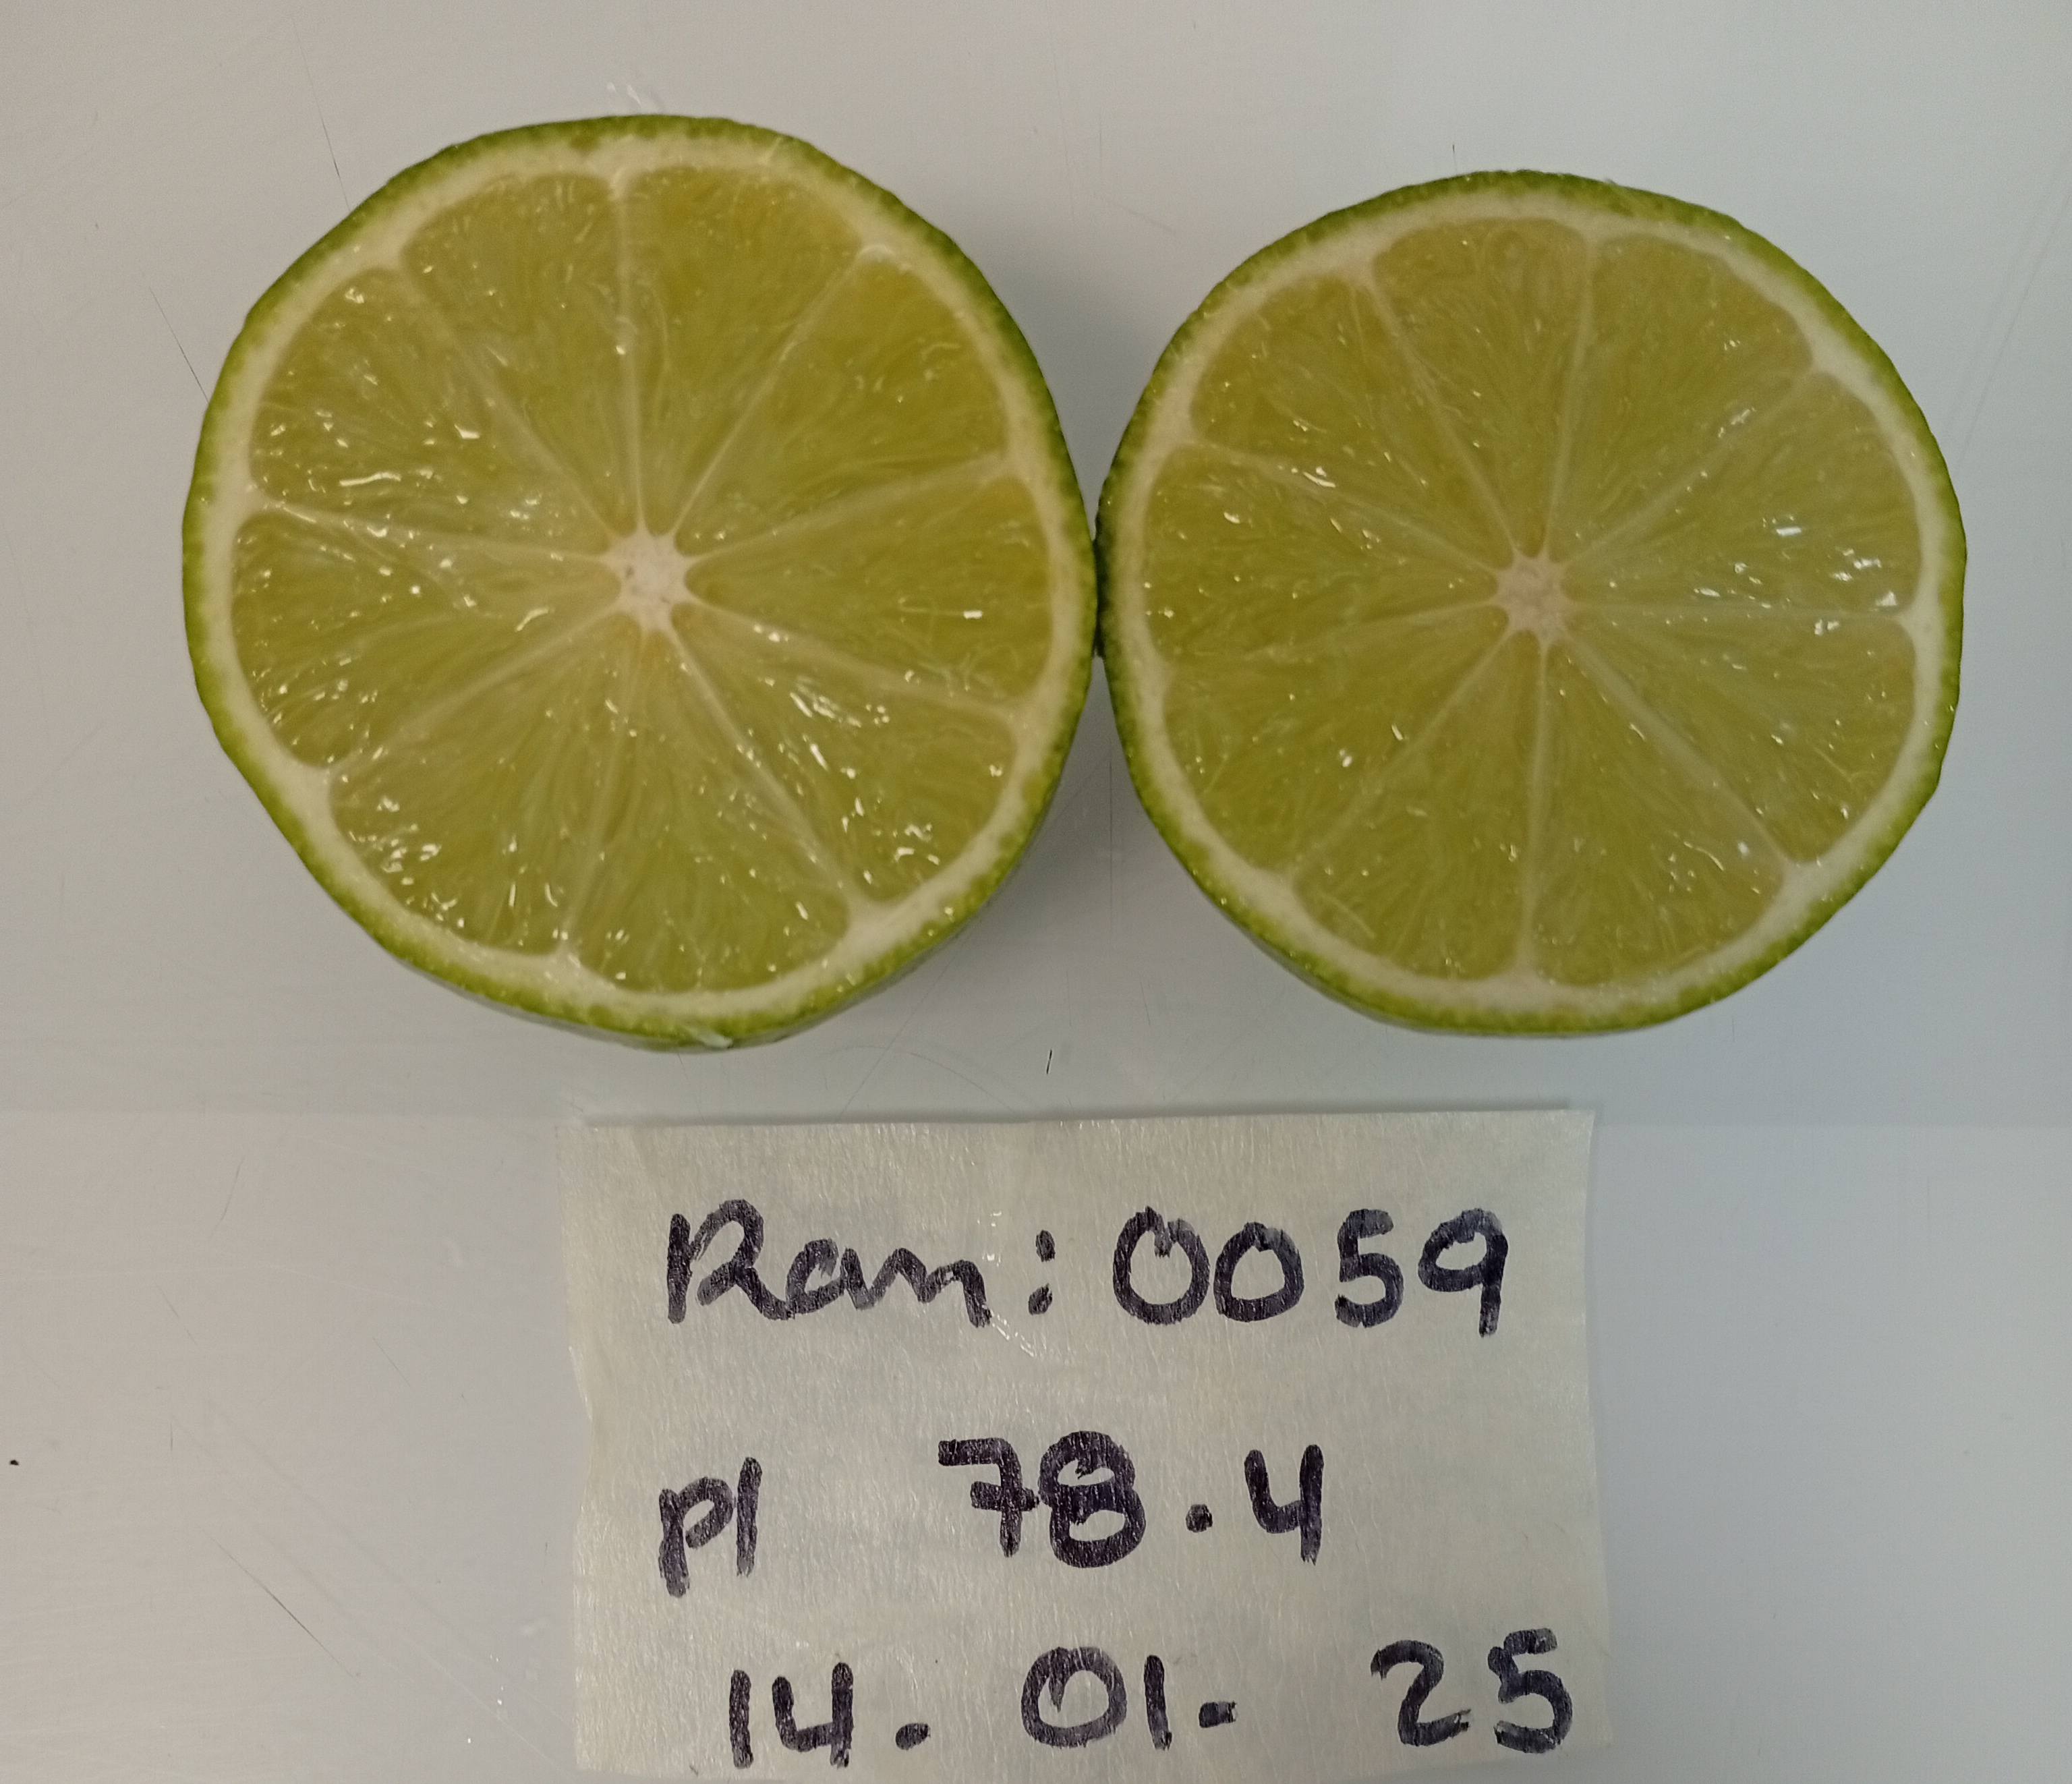 Ran: 0059
pl 78.4
14. 01. 25